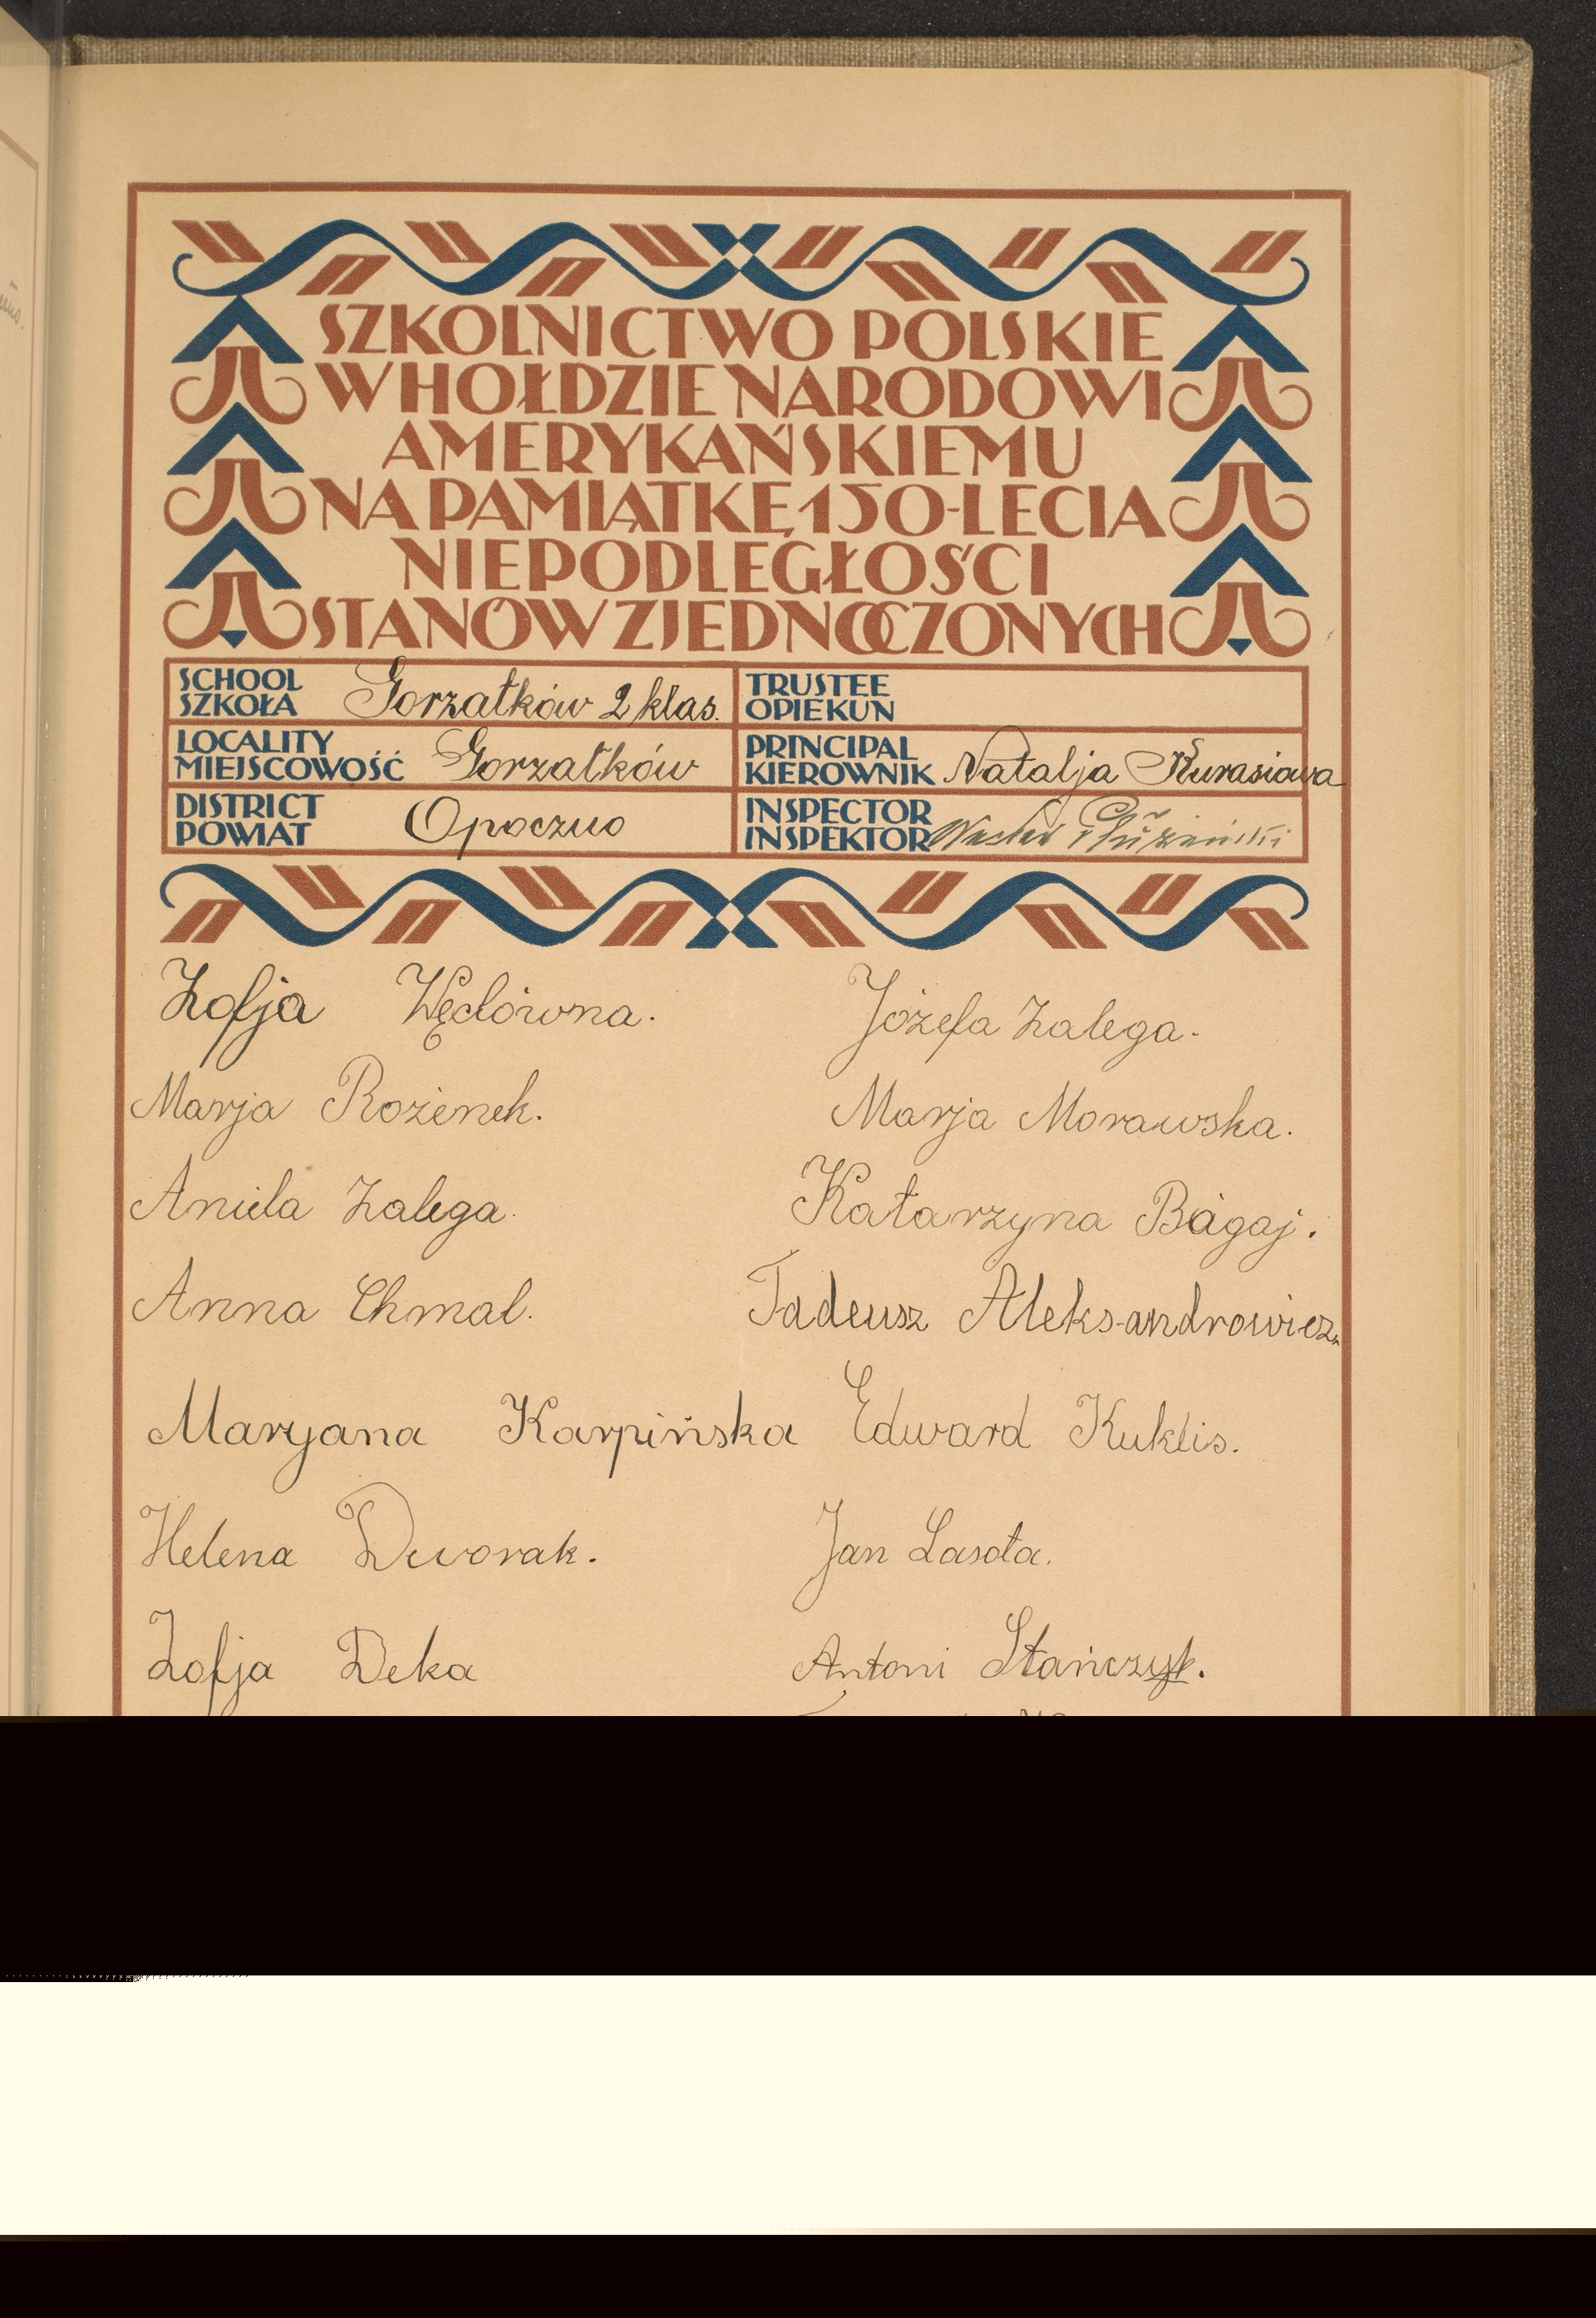 SZKOLNICTWO POLSKIE
W HOŁDZIE NARODOWI
AMERYKAŃSKIEMU
NA PAMIĄTKĘ 150-LECIA
NIEPODLEGŁOŚCI
STANÓW ZJEDNOCZONYCH
SCHOOL
SZKOŁA Gorzałków 2 klas.
TRUSTEE
OPIEKUN
LOCALITY
MIEJSCOWOŚĆ Gorzałków
PRINCIPAL
KIEROWNIK Natalja Kurasiowa
DISTRICT
POWIAT Opoczno
INSPECTOR
INSPEKTOR
Zofja Wędówna. Józefa Zalega.
Marja Rożenek. Marja Morawska.
Aniela Zalega. Katarzyna Bągaj.
Anna Chmal. Tadeusz Aleksandrowicz.
Maryana Karpińska Edward Kuklis.
Helena Dworak. Jan Lasota.
Zofja Deka Antoni Stańczyk.